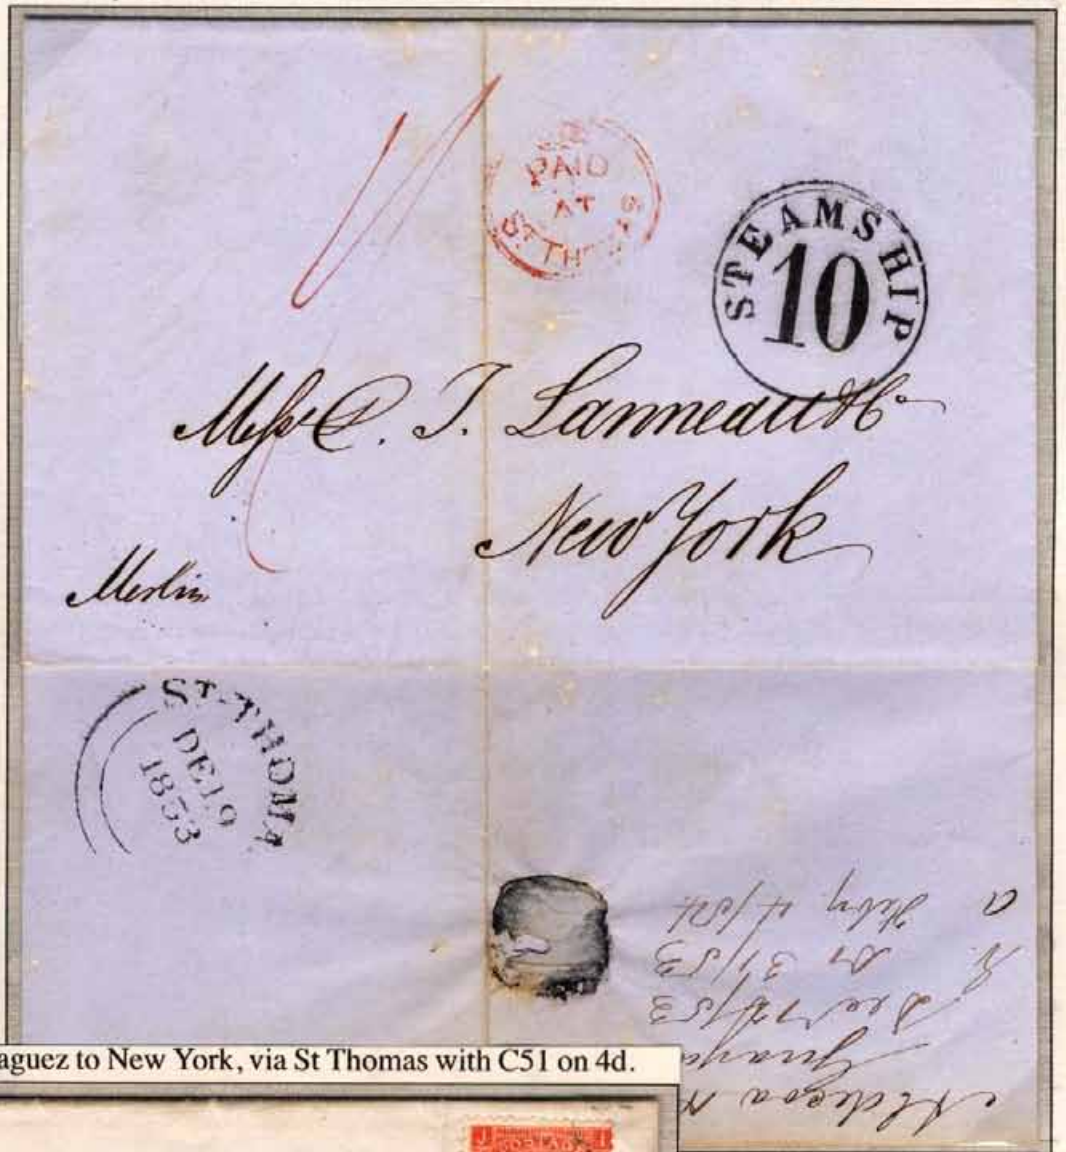 PAID
AT
ST THOMAS
STEAMSHIP
10
Messrs C. T. Lanneau & Co
New York
Merlin
ST THOMA
DE 19
1853
Dec 12/53
31/53
Feby 4/54
aguez to New York, via St Thomas with C51 on 4d.
POSTAGE